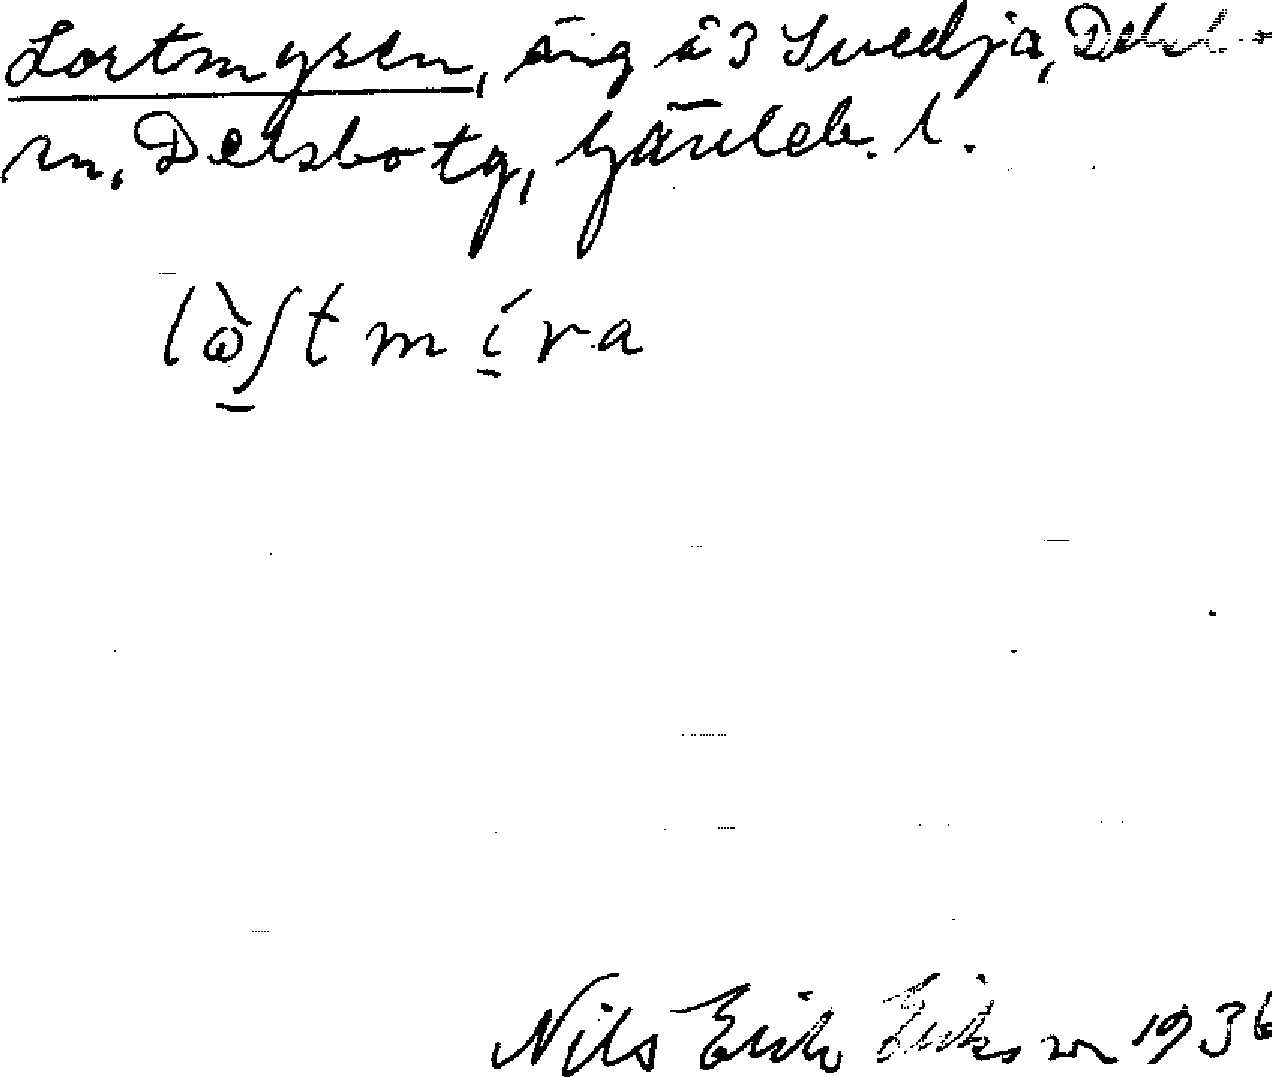 Lortmyren, äng å 3 Svedja, Delsbo
sn, Delsbo tg, Gävleb. l.
lὼʃtmíra
Nils Erik Erikson 1936